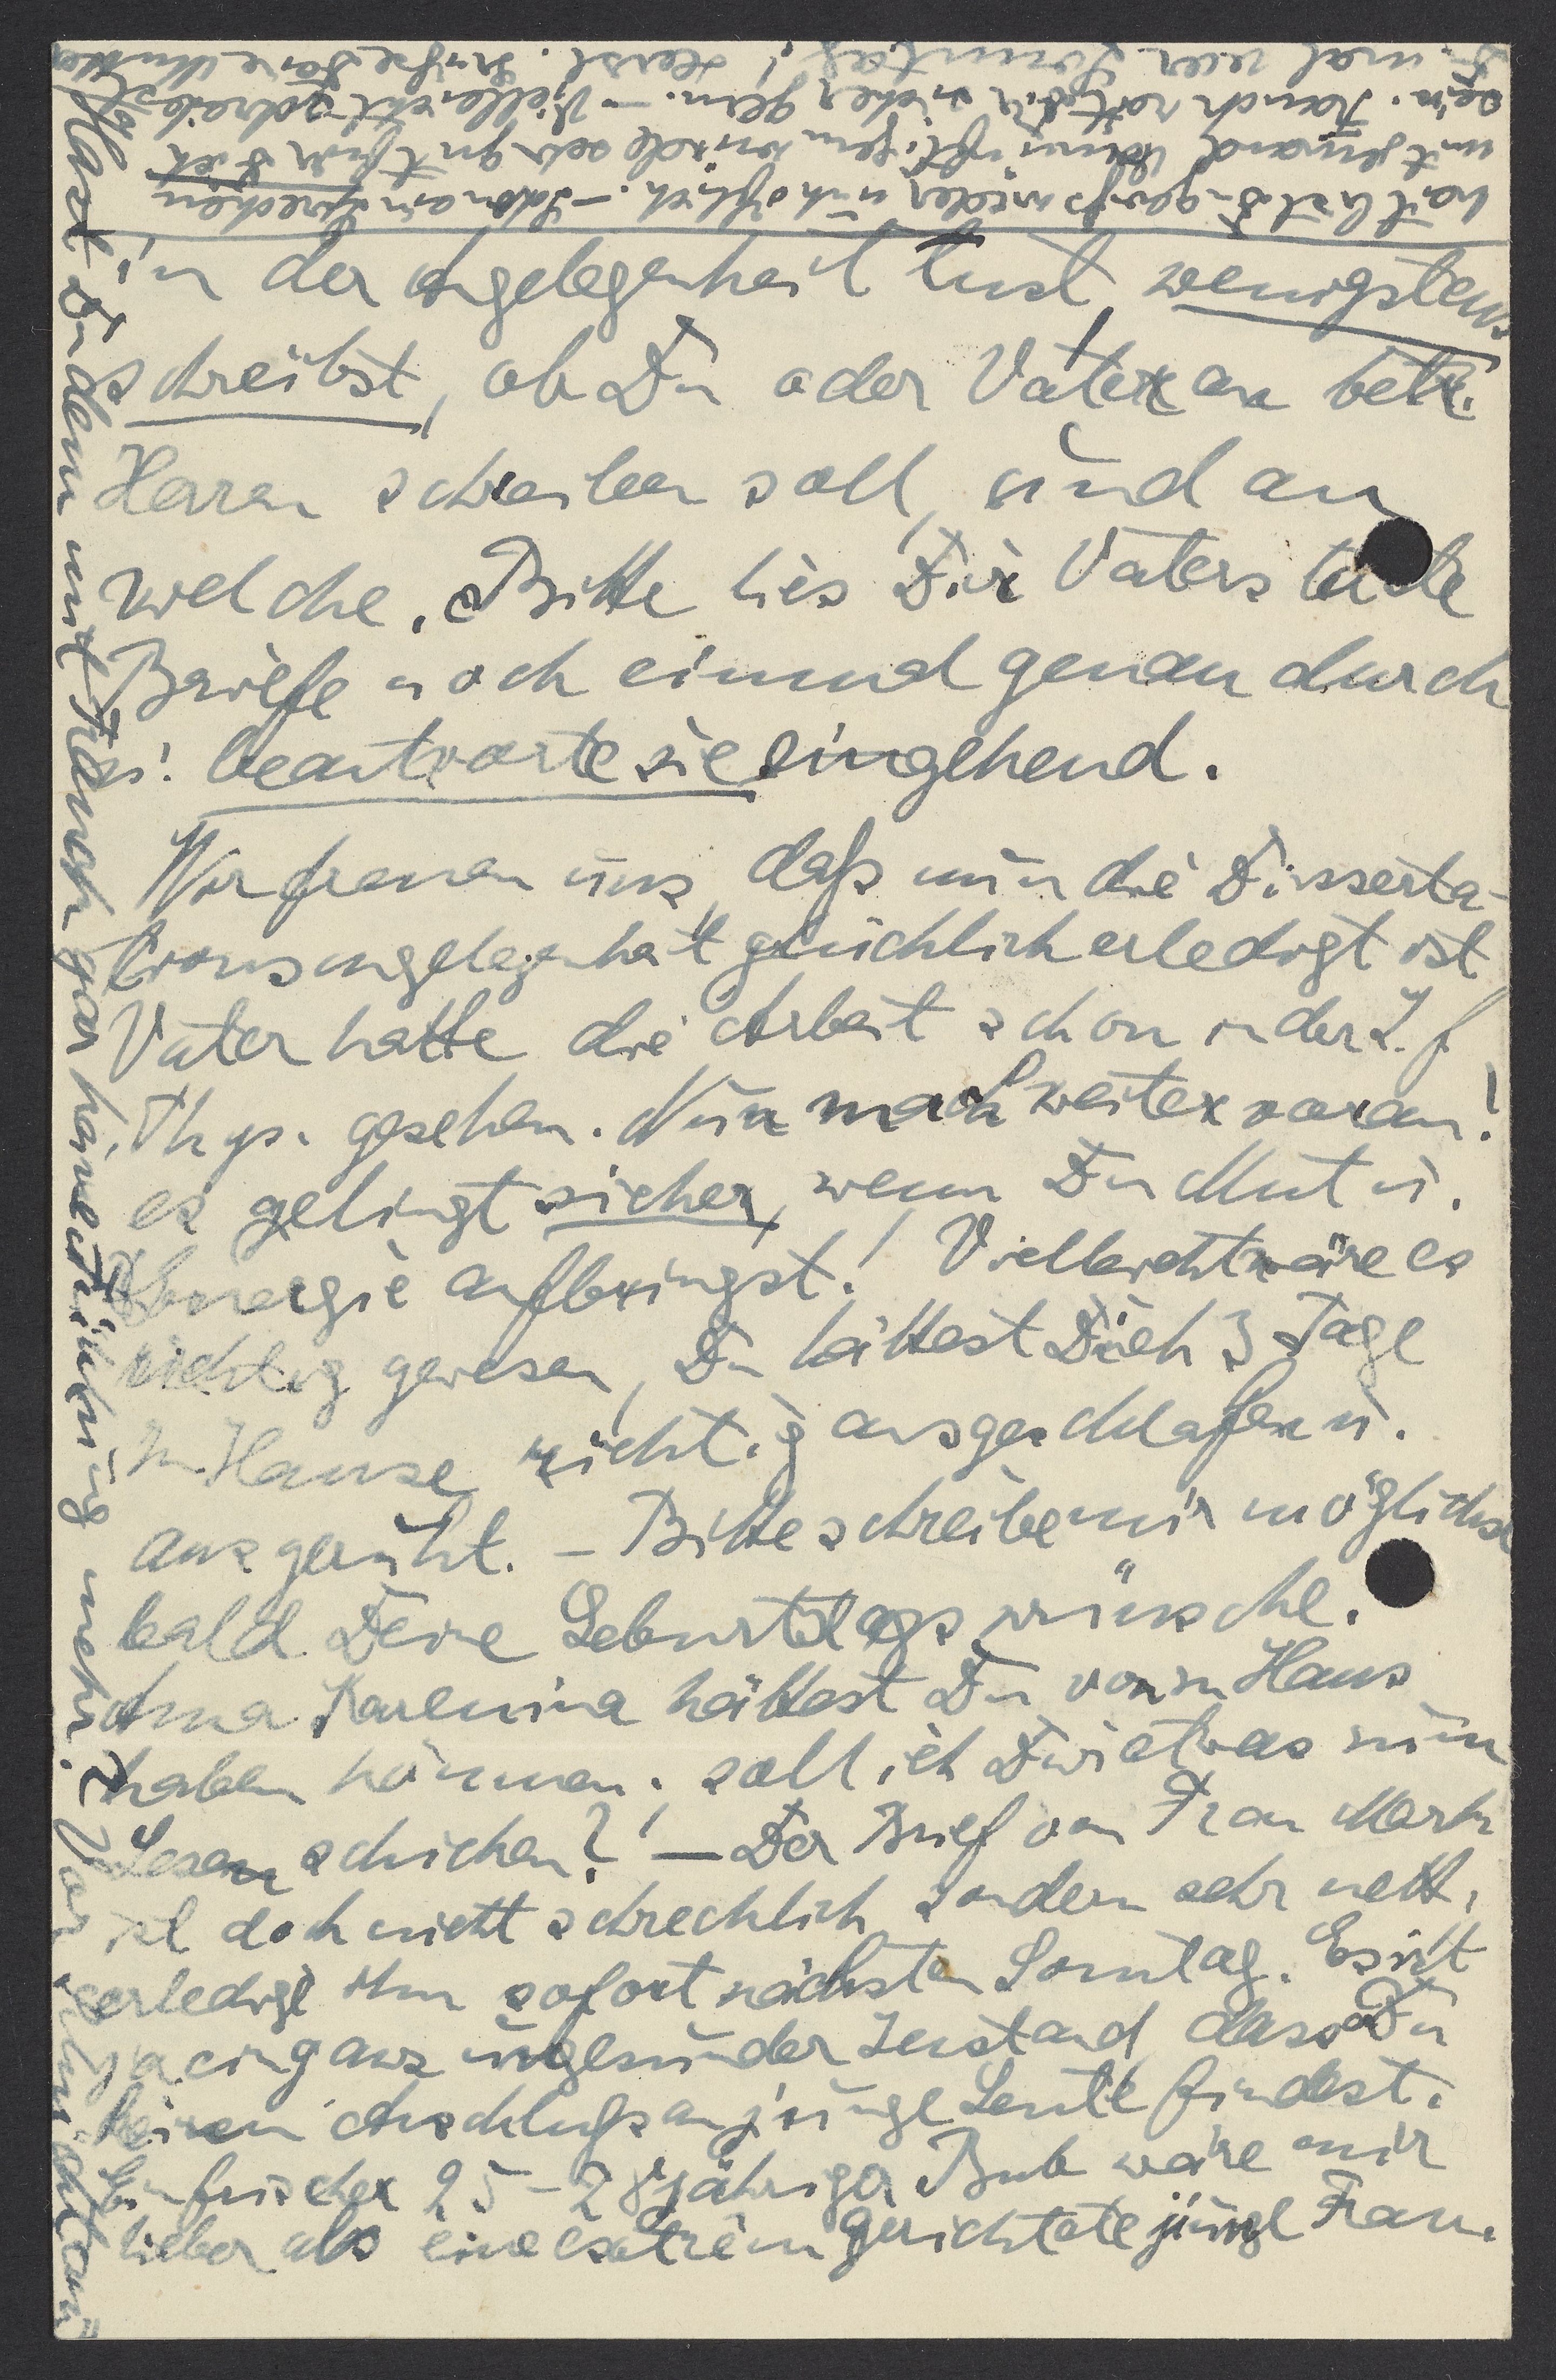 in der Angelegenheit tust, wenigstens
schreibst, ob Du oder Vater an betr.
Herren schreiben soll, und an
welche. Bitte lies Dir Vaters letzte
Briefe noch einmal genau durch
u. beantworte sie eingehend.
Wir freuen uns, daß nun die Disserta-
tionsangelegenheit glücklich erledigt ist
Vater hatte die Arbeit schon in der Z. f
Phys. gesehen. Nun mach weiter voran!
es gelingt sicher, wenn Du Mut u.
Energie aufbringst! Vielleicht wäre es
richtig gewesen, Du hättest Dich 3 Tage
zu Hause richtig ausgeschlafen u.
ausgeruht. – Bitte schreibe mir möglichst
bald Deine Geburtstagswünsche.
Anna Karenina hättest Du von zu Haus
haben können. soll ich Dir etwas zum
Lesen schicken? – Der Brief von Frau
ist doch nicht schrecklich, sondern sehr nett,
erledigt ihn sofort nächsten Sonntag. Es ist
ja ein ganz ungesunder Zustand, dass Du
keinen Anschluß an junge Leute findest.
Ein frischer 25–28jähriger Bub wäre mir
lieber als eine extrem gerichtete junge Frau.
Hast Du denn mit Franck gar keine Fühlung mehr. Vor
hast Du Aussprechen
mit jemand vernünftigem würde sehr gut für Dich
sein. Franck hört Dir sicher gern. – Vielleicht schreibst
Du mal vor Sonntag! Herzl. Grüße Deine Mutter